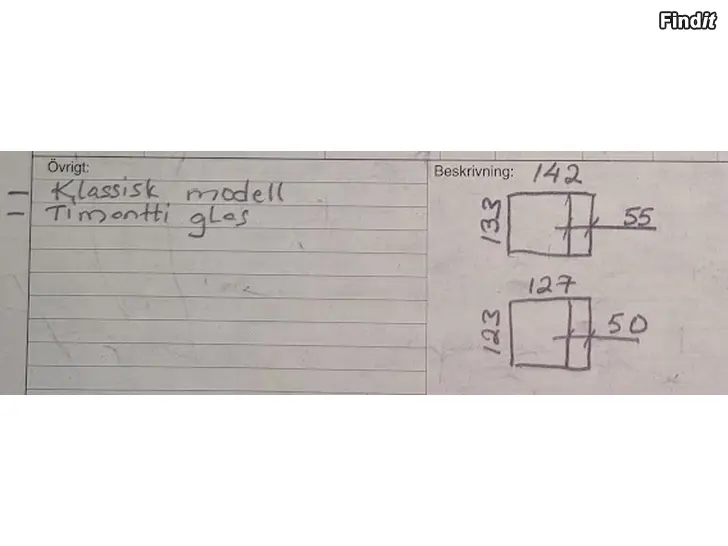 Findit
Övrigt:
- Klassisk modell
- Timontti glas
Beskrivning:
142
133
55
127
123
50